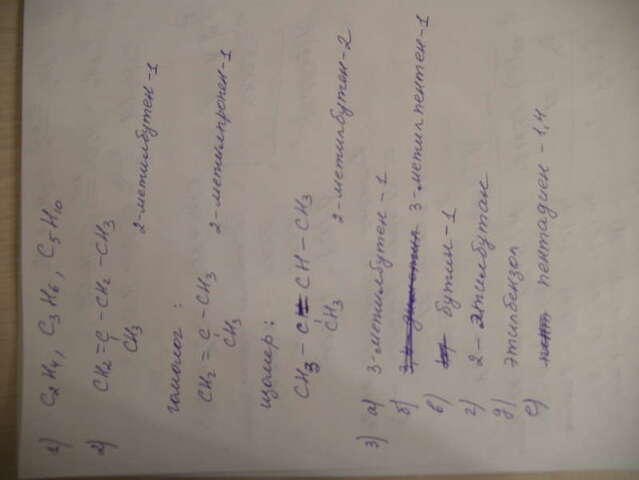 1) C2H4, C3H6, C5H10
2) CH2=C-CH2-CH3
CH3
2-метилбутен-1
гомолог:
CH2=C-CH3
CH3
2-метилпропен-1
изомер:
CH3-C=CH-CH3
CH3
2-метилбутен-2
3) а) 3-метилбутен-1
б) 3-метилпентен-1
в) бутин-1
г) 2-этилбутан
д) этилбензол
е) пентадиен-1,4